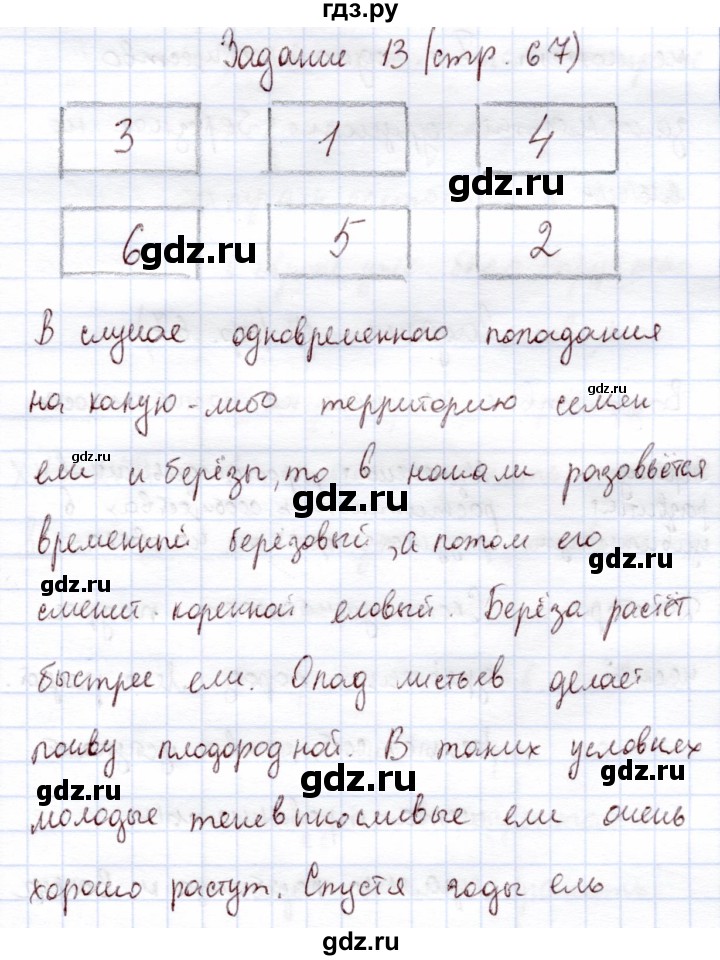 гдз.ру
Задание 13 (стр. 67)
3 1 4
gdz.ru
6 5 2
gdz.ru
gdz.ru
В случае одновременного попадания
gdz.ru
на какую-либо территорию семян
gdz.ru
ели и берёзы, то в начали разовьётся
gdz.ru
временный берёзовый, а потом его
gdz.ru
gdz.ru
сменит коренной еловый. Берёза растёт
gdz.ru
быстрее ели. Опад листьев делает
gdz.ru
почву плодородной. В таких условиях
gdz.ru
gdz.ru
gdz.ru
молодые теневыносливые ели очень
хорошо растут. Спустя годы ель
gdz.ru
gdz.ru
gdz.ru